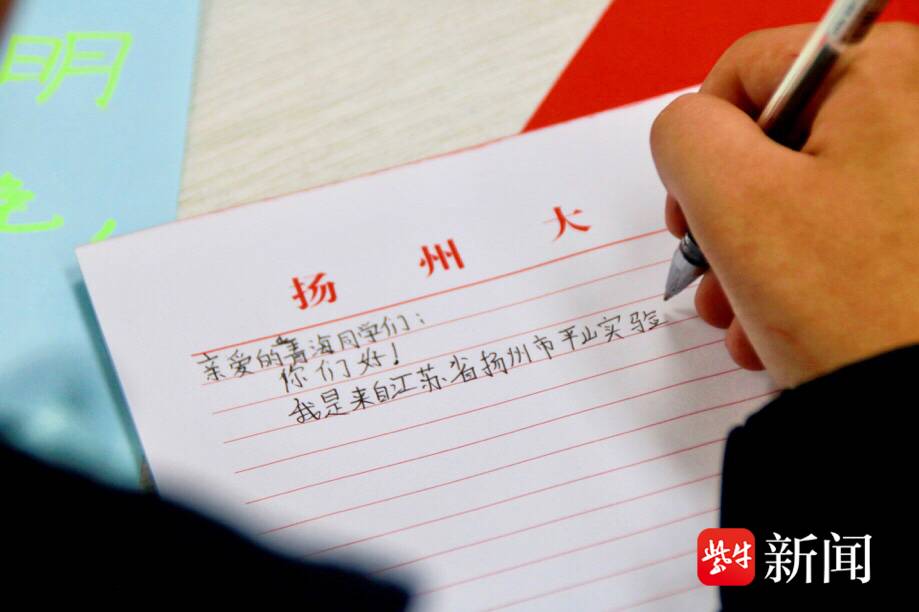 明
色!
扬州大
亲爱的青海同学们:
你们好!
我是来自江苏省扬州市平山实验
紫牛新闻